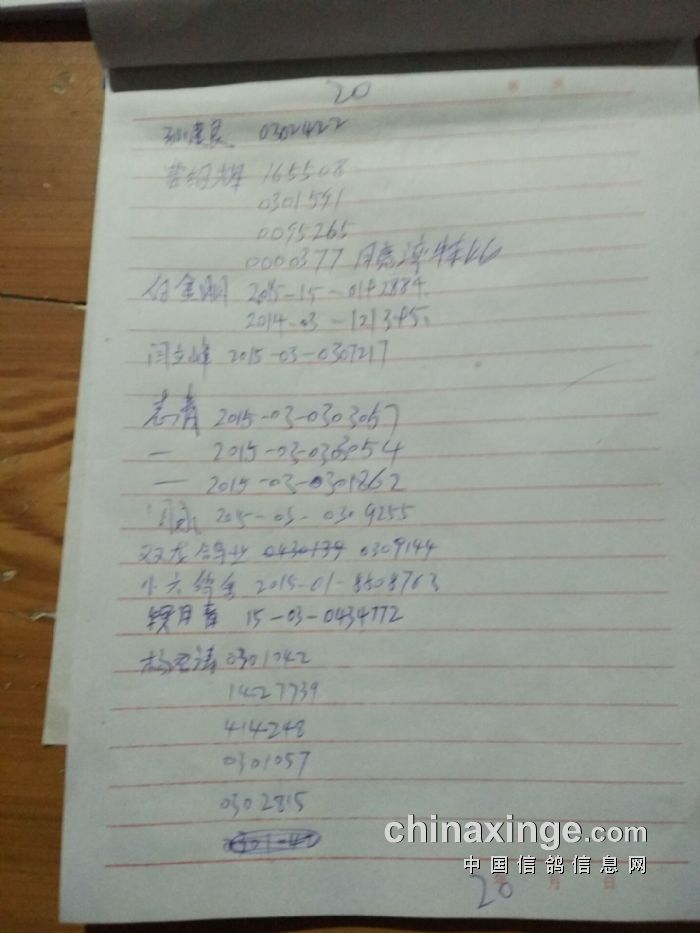 20
0302422
165508
0301591
0095265
0000377 月亮湾特66
付金刚 2015-15-0142884
2014-03-121345
闫立峰 2015-03-0307217
志青 2015-03-0303057
— 2015-03-0303054
— 2015-03-0301862
2015-03-0309255
双龙鸽业 0430139 0309144
小六鸽舍 2015-01-8808763
15-03-0434772
0301042
1427739
414248
0301057
0302815
chinaxinge.com
中国信鸽信息网
20 月 日